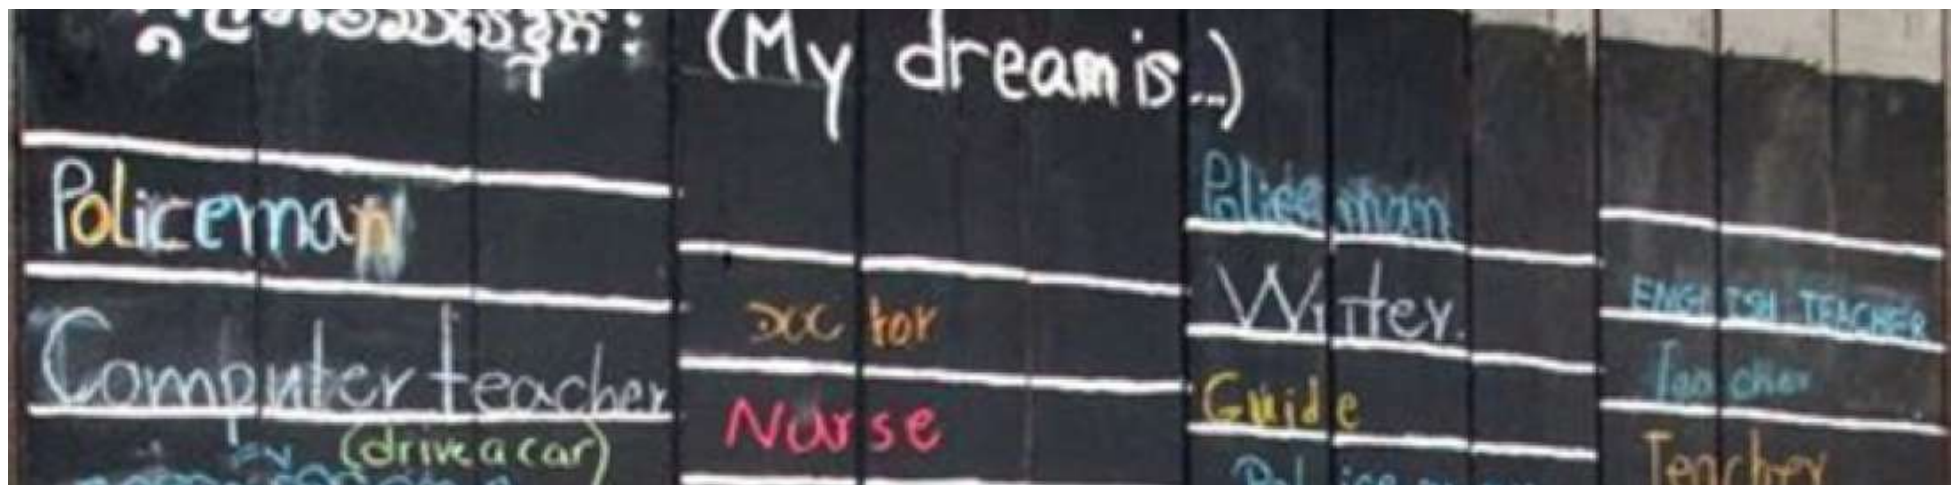 (My dream is...)
Policeman
Computer teacher
(drive a car)
Doctor
Nurse
Policeman
Writer.
Guide
ENGLISH TEACHER
Teacher
Teacher